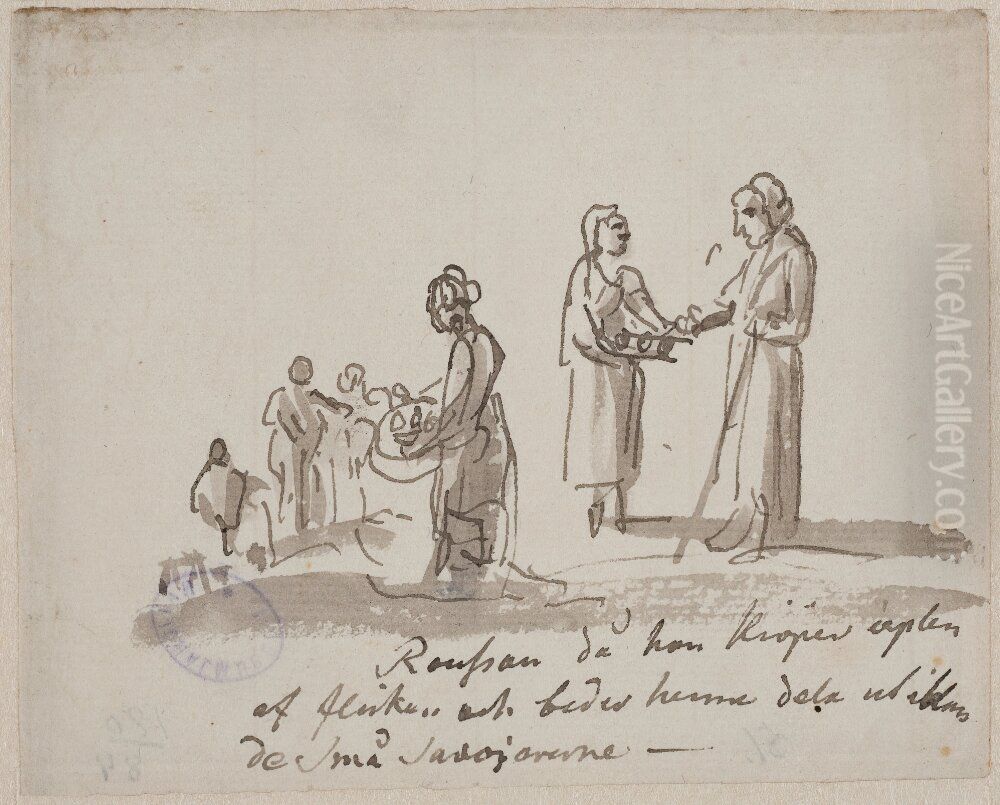 Rousseau då han kiöper äplen
af flickan och beder henne dela ut ibland
de små Savojarerne —
NiceArtGallery.com